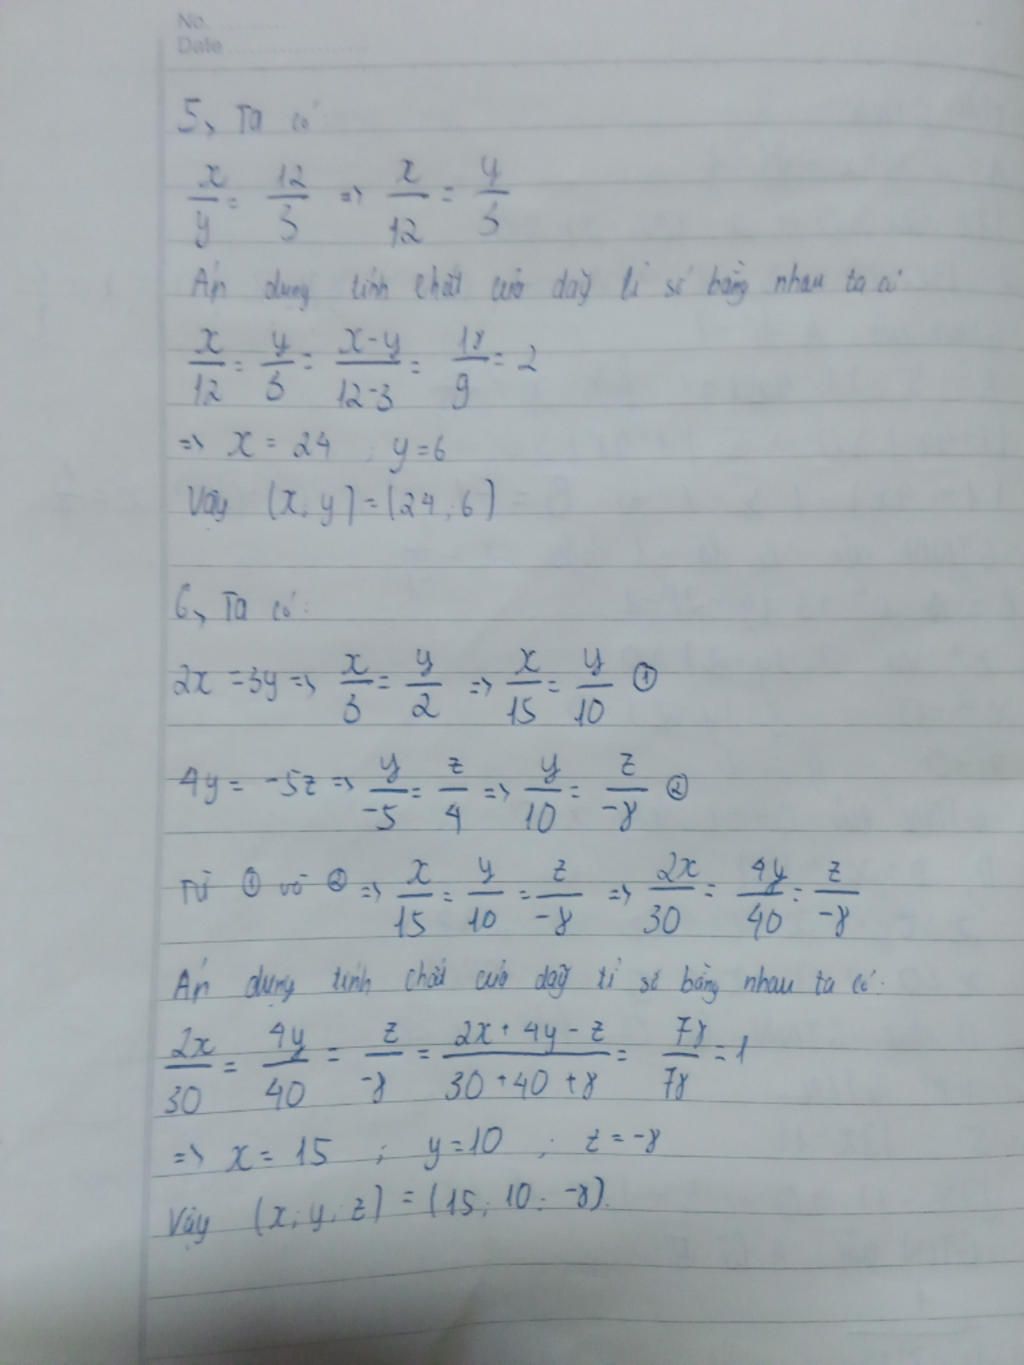 No.
Date
5, Ta có
x/y = 12/3 => x/12 = y/3
Áp dụng tính chất của dãy tỉ số bằng nhau ta có
x/12 = y/3 = x-y/12-3 = 18/9 = 2
=> x = 24 ; y=6
Vậy (x, y) = (24, 6)
6, Ta có:
2x = 3y => x/3 = y/2 => x/15 = y/10 ①
4y = -5z => y/-5 = z/4 => y/10 = z/-8 ②
Từ ① và ② => x/15 = y/10 = z/-8 => 2x/30 = 4y/40 = z/-8
Áp dụng tính chất của dãy tỉ số bằng nhau ta có:
2x/30 = 4y/40 = z/-8 = 2x+4y-z/30+40+8 = 78/78 = 1
=> x = 15 ; y=10 ; z = -8
Vậy (x; y; z) = (15; 10; -8).